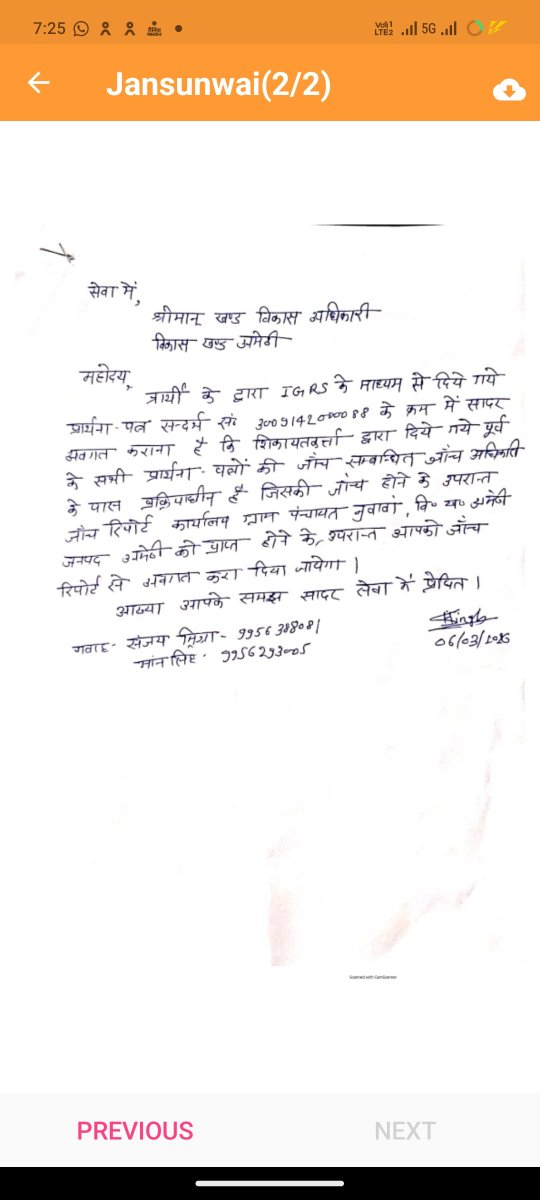 7:25
Vo)) 1 LTE2 5G
Jansunwai(2/2)
सेवा में,
श्रीमान् खण्ड विकास अधिकारी
विकास खण्ड अमेठी
महोदय,
प्रार्थी के द्वारा IGRS के माध्यम से दिये गये
प्रार्थना-पत्र सन्दर्भ सं० के क्रम में सादर
अवगत कराना है कि शिकायतकर्ता द्वारा दिये गये पूर्व
के सभी प्रार्थना-पत्रों की जाँच सम्बन्धित जाँच अधिकारी
के पास प्रक्रियाधीन है जिसकी जाँच होने के उपरान्त
जाँच रिपोर्ट कार्यालय ग्राम पंचायत नुवावां, वि० ख० अमेठी
जनपद अमेठी को प्राप्त होने के, उपरान्त आपको जाँच
रिपोर्ट से अवगत करा दिया जायेगा।
आख्या आपके समझ सादर सेवा में प्रेषित।
गवाह- संजय मिश्रा- 9956388081
मान सिंह- 9956293005
06/03/2026
Scanned with CamScanner
PREVIOUS
NEXT